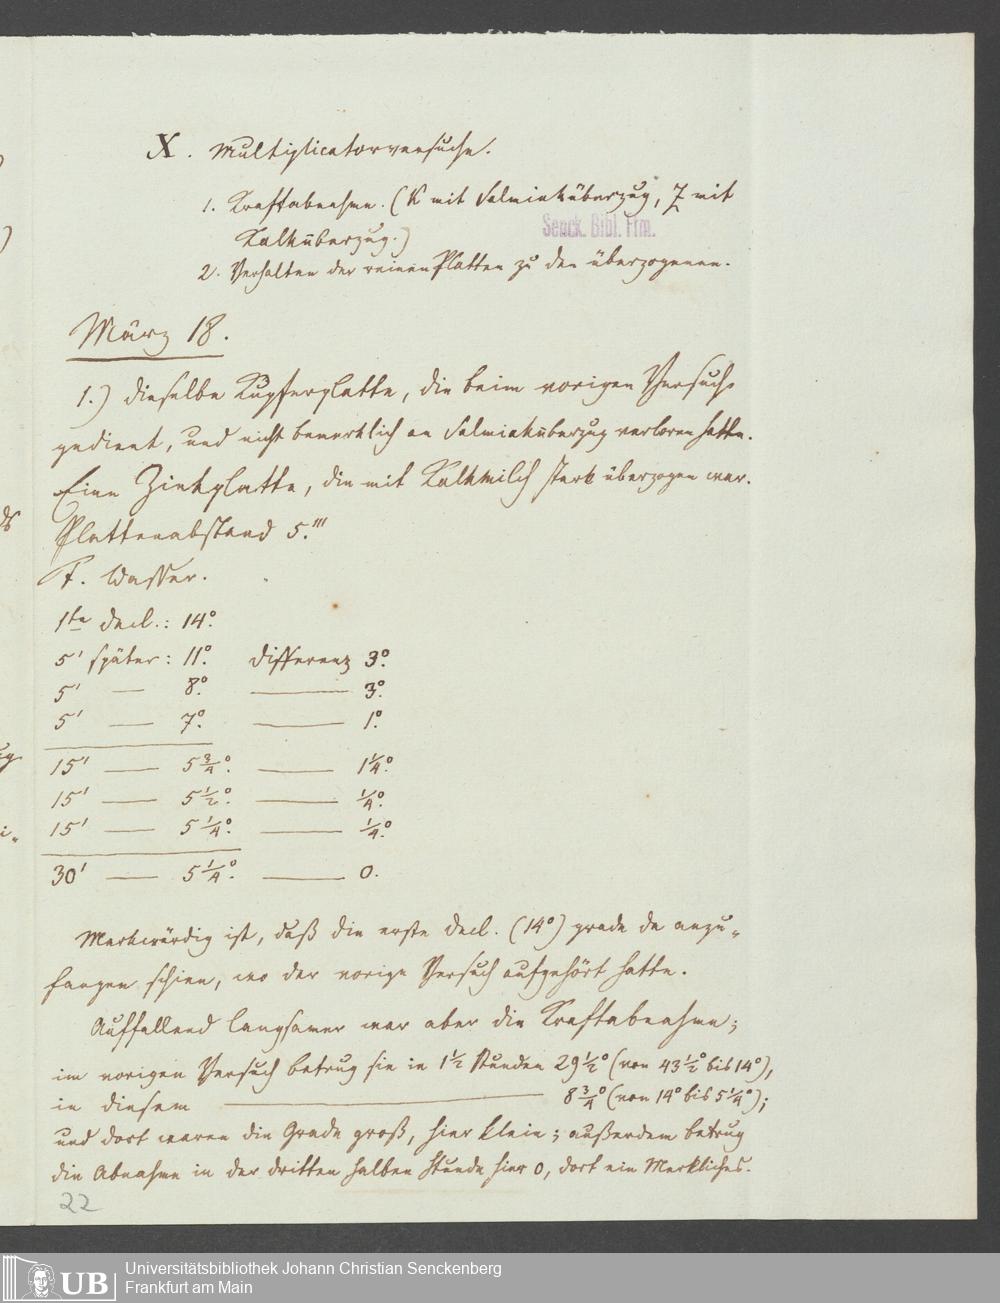 X. Multiplicatorversuche.
1. Kraftabnahme. (K mit Salmiaküberzug, Z mit
Kalküberzug.)
Senck. Bibl. Ffm.
2. Verhalten der reinen Platten zu den überzogenen.
März 18.
1.) dieselbe Kupferplatte, die beim vorigen Versuch
gedient, und nicht bemerklich an Salmiaküberzug verloren hatte.
Eine Zinkplatte, die mit Kalkmilch stark überzogen war.
Plattenabstand 5.'''
F. Wasser.
1te decl.: 14°.
5' später: 11°. differenz 3°.
5' — 8°. — 3°.
5' — 7°. — 1°.
15' — 5 3/4°. — 1 1/4°.
15' — 5 1/2°. — 1/4°.
15' — 5 1/4°. — 1/4°.
30' — 5 1/4°. — 0.
Merkwürdig ist, daß die erste decl. (14°) grade da anzu-
fangen schien, wo der vorige Versuch aufgehört hatte.
Auffallend langsamer war aber die Kraftabnahme;
im vorigen Versuch betrug sie in 1 1/2 Stunden 29 1/2° (von 43 1/2° bis 14°),
in diesem — 8 3/4° (von 14° bis 5 1/4°);
und dort waren die Grade groß, hier klein; außerdem betrug
die Abnahme in der dritten halben Stunde hier 0, dort ein Merkliches.
22
UB
Universitätsbibliothek Johann Christian Senckenberg
Frankfurt am Main